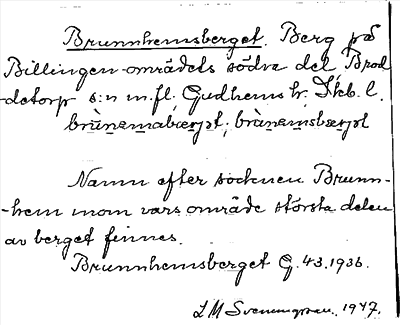 Brunnhemsberget. Berg på
Billingen-områdets södra del Brod
detorp s:n m.fl., Gudhems hr, Skb. l.
Namn efter socknen Brunn-
-hem inom vars område största delen
av berget finnes.
Brunnhemsberget G. 43. 1936.
L M Svenungsson. 1947.